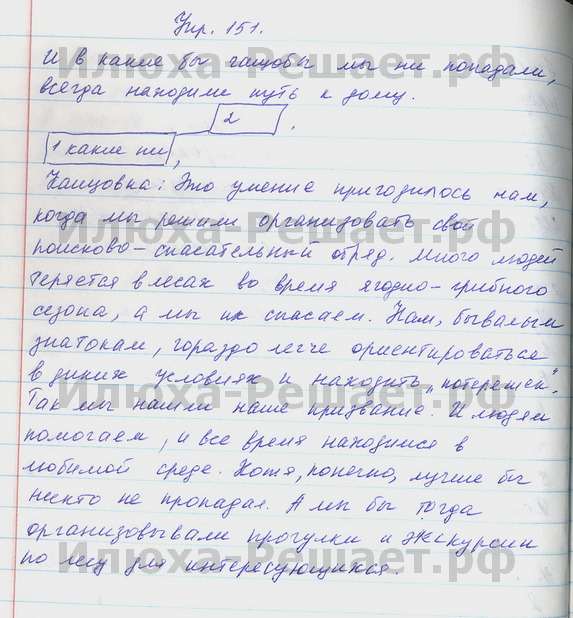 Упр. 151.
И в какие бы чащобы мы ни попадали,
всегда находили путь к дому.
2
1 какие ни, .
Концовка: Это умение пригодилось нам,
когда мы решили организовать свой
поисково-спасательный отряд. Много людей
теряется в лесах во время ягодно-грибного
сезона, а мы их спасаем. Нам, бывалым
знатокам, гораздо легче ориентироваться
в диких условиях и находить „потеряшек".
Так мы нашли наше призвание. И людям
помогаем, и все время находимся в
любимой среде. Хотя, конечно, лучше бы
никто не пропадал. А мы бы тогда
организовывали прогулки и экскурсии
по лесу для интересующихся.
Илюха-Решает.рф
Илюха-Решает.рф
Илюха-Решает.рф
Илюха-Решает.рф